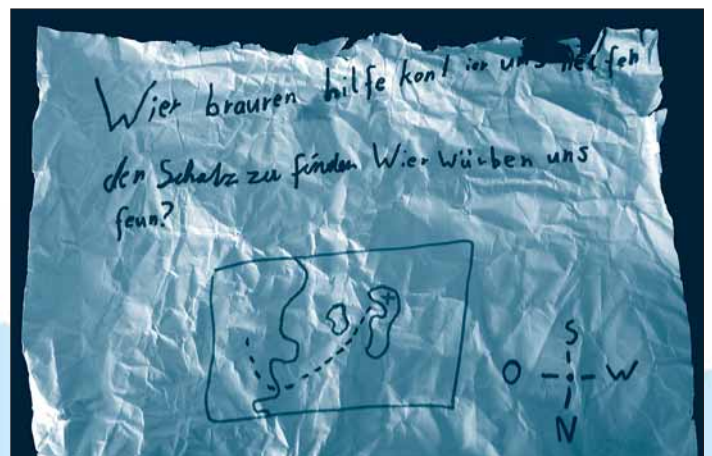 Wier brauren hilfe kont ier uns helfen
den Schatz zu finden Wier würben uns
feun?
S
O W
N